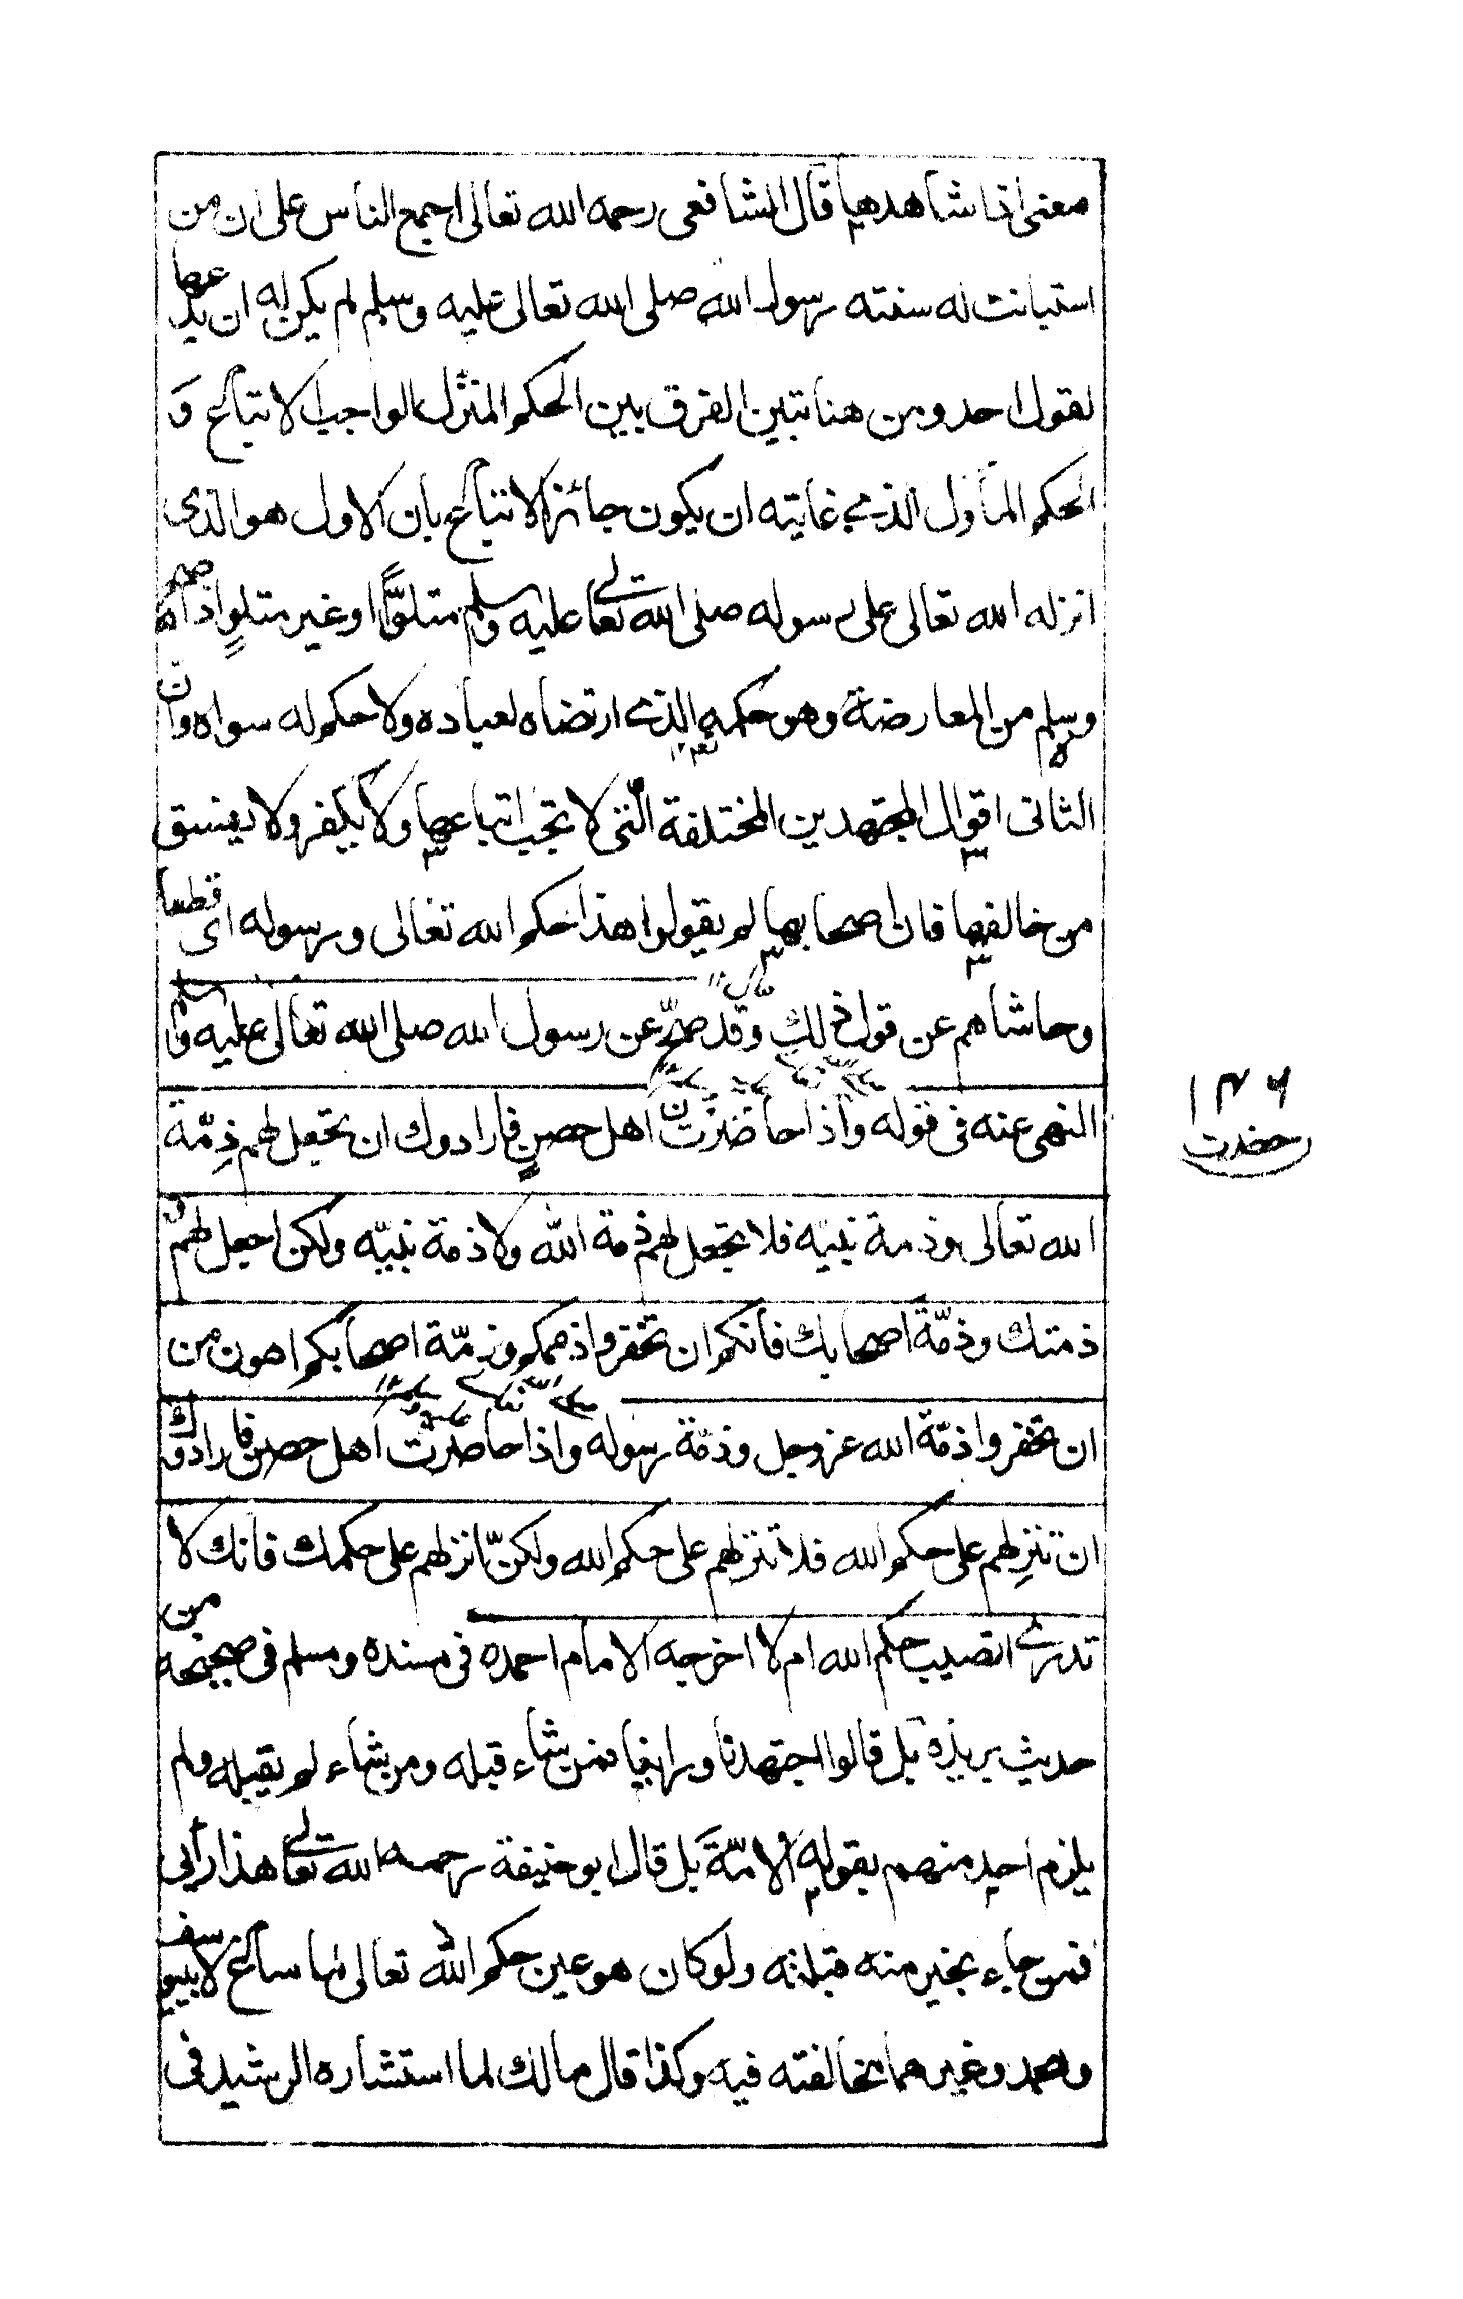 معنى اذا شاهدها قال الشافعى رحمه الله تعالى اجمع الناس على ان من
استبانت له سنته رسول الله صلى الله تعالى عليه وسلم لم يكن له ان يدعها
لقول احد ومن هنا تبين الفرق بين الحكم المنزل الواجب الاتباع و
الحكم المأول الذى غايته ان يكون جائز الاتباع بان الاول هو الذى
انزله الله تعالى على رسوله صلى الله تعالى عليه وسلم متلوًّا او غير متلوٍ اذا صح
وسلم من المعارضة وهو حكمه الذى ارتضاه لعباده ولا حكم له سواه وان
الثانى اقوال المجتهدين المختلفة الّتى لا يجب اتباعها ولا يكفر ولا يفسق
من خالفها فان اصحابها لم يقولوا هذا حكم الله تعالى ورسوله اى قطعا
وحاشاهم عن قول ذلك وقد صحّ عن رسول الله صلى الله تعالى عليه وسلم
النهى عنه فى قوله واذا حاضرت اهل حصنٍ فارادوك ان تجعل لهم ذِمّة
الله تعالى وذمة نبيّه فلا تجعل لهم ذمة الله ولا ذمة نبيّه ولكن اجعل لهم
ذمتك وذمّة اصحابك فانكم ان تخفروا ذممكم وذمّة اصحابكم اهون من
ان تخفروا ذمّة الله عزوجل وذمّة رسوله واذا حاضرت اهل حصن فارادوك
ان تنزلهم على حكم الله فلا تنزلهم على حكم الله ولكنّ انزلهم على حكمك فانك لا
تدرى اتصيب حكم الله ام لا اخرجه الامام احمد فى مسنده ومسلم فى صحيحه من
حديث بريدة بل قالوا اجتهدنا وراينا فمن شاء قبله ومن شاء لم يقبله ولم
يلزم احد منهم بقوله الامّة بل قال ابو حنيفة رحمه الله تعالى هذا رأيى
فمن جاء بخير منه قبلته ولو كان هو عين حكم الله تعالى لما ساغ لابى يوسف
ومحمد وغيرهما مخالفته فيه وكذا قال مالك لما استشاره الرشيد فى
١٣٦
حضرت